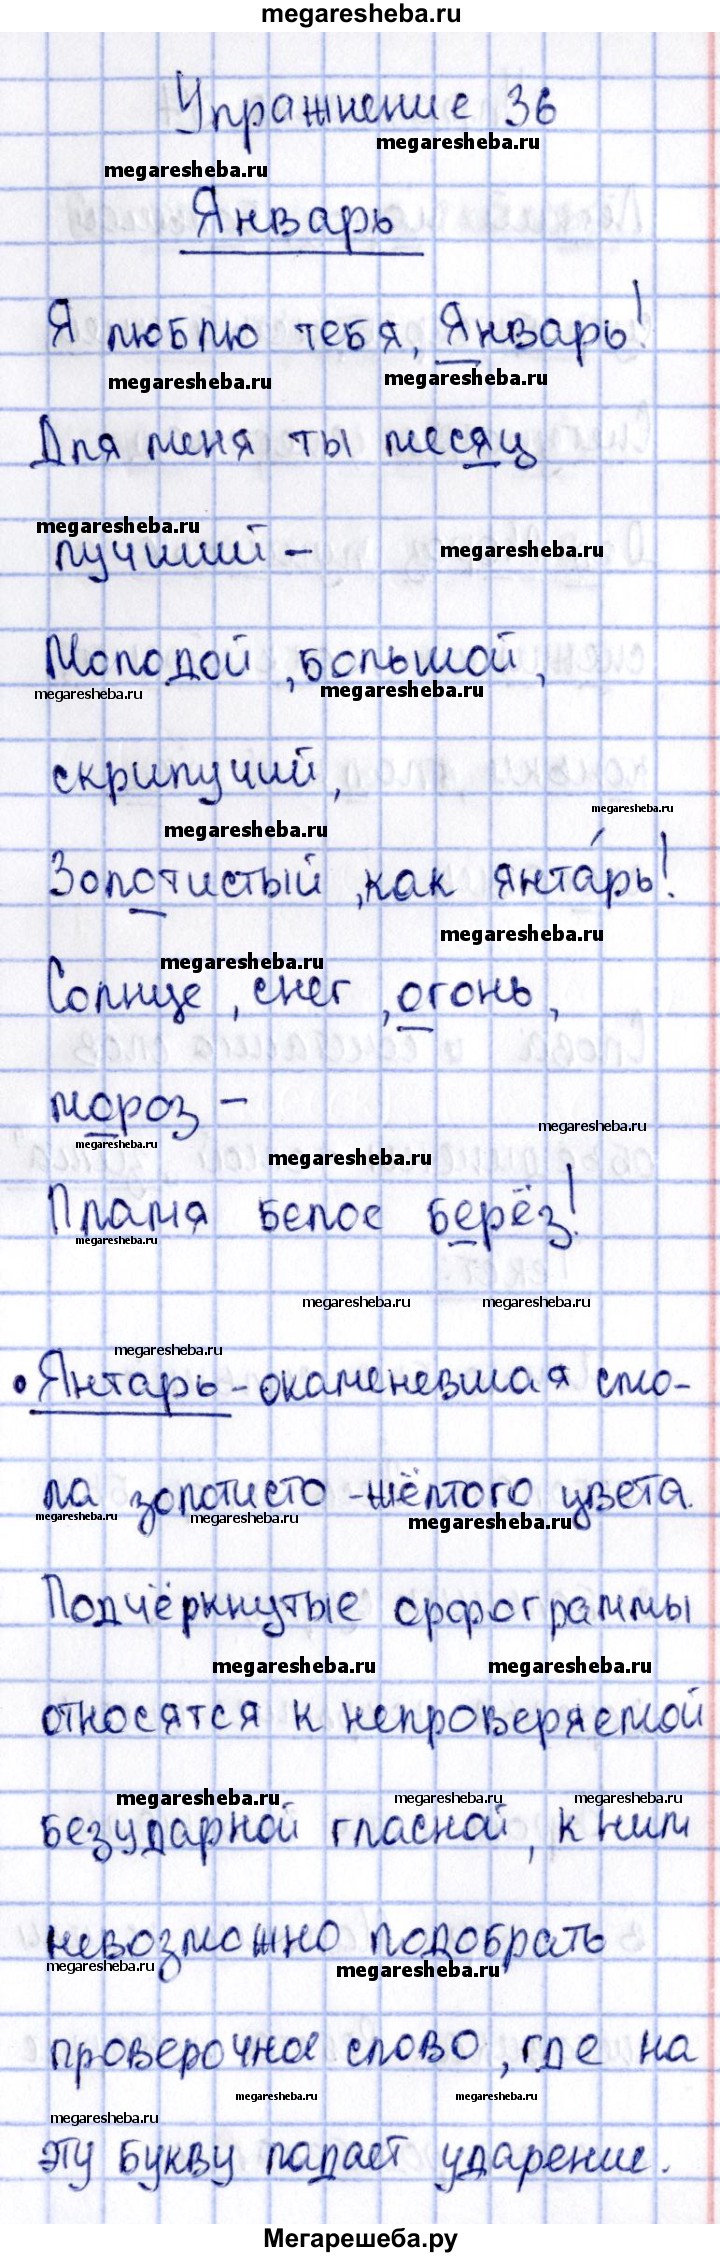 megaresheba.ru
Упражнение 36
megaresheba.ru
megaresheba.ru
Январь
Я люблю тебя, Январь!
megaresheba.ru megaresheba.ru
Для меня ты месяц
megaresheba.ru
лучший – megaresheba.ru
Молодой, большой,
megaresheba.ru megaresheba.ru
скрипучий,
megaresheba.ru
megaresheba.ru
Золотистый, как янта́рь!
megaresheba.ru
megaresheba.ru
Солнце, снег, огонь,
мороз –
megaresheba.ru
megaresheba.ru megaresheba.ru
Пламя белое берёз!
megaresheba.ru
megaresheba.ru megaresheba.ru
megaresheba.ru
• Янтарь – окаменевшая смо-
ла золотисто-жёлтого цвета.
megaresheba.ru megaresheba.ru megaresheba.ru
Подчёркнутые орфограммы
megaresheba.ru megaresheba.ru
относятся к непроверяемой
megaresheba.ru megaresheba.ru megaresheba.ru
безударной гласной, к ним
невозможно подобрать
megaresheba.ru megaresheba.ru
проверочное слово, где на
megaresheba.ru megaresheba.ru
megaresheba.ru
эту букву падает ударение.
Мегарешеба.ру